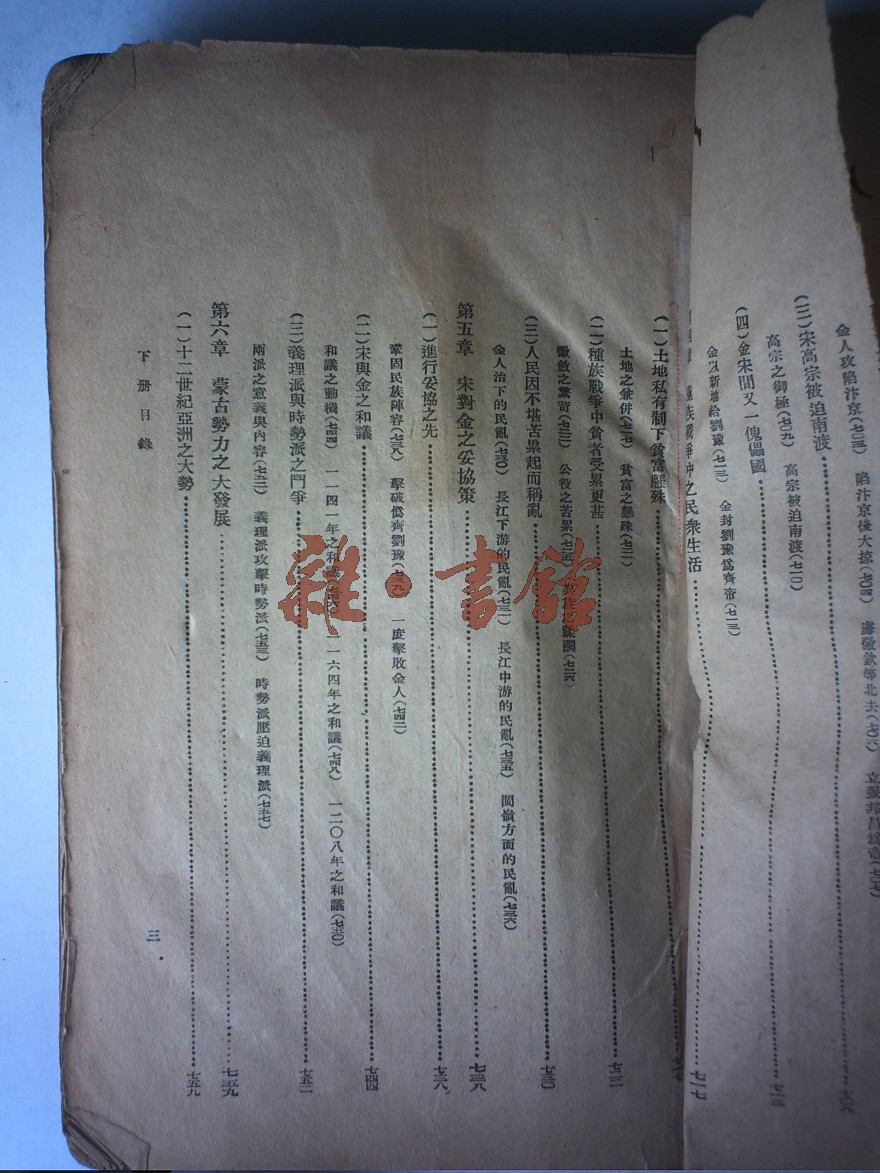 金人攻陷汴京(七〇三) 陷汴京後大掠(七〇四) 北去(七〇六) 立張邦昌爲帝(七〇七)
(三)宋高宗被迫南渡
高宗之御極(七〇九) 高宗被迫南渡(七一〇)
(四)金宋間又一傀儡國 七一三
金以新地給劉豫(七一三) 金封劉豫爲齊帝(七一三)
種族戰爭中之民衆生活 七一七
(一)土地私有制下貧富懸殊
土地之兼併(七一七) 貧富之懸殊(七二一)
(二)種族戰爭中貧者受累更甚 七二二
歛之繁苛(七二二) 公役之苦累(七二五) (七二六)
(三)人民因不堪苦累起而稱亂 七三〇
金人治下的民亂(七三〇) 長江下游的民亂(七三一) 長江中游的民亂(七三五) 閩嶺方面的民亂(七三六)
第五章 宋對金之妥協策 七三八
(一)進行妥協之先 七三八
鞏固民族陣容(七三八) 擊破僞齊劉豫(七三九) 一度擊敗金人(七四二)
(二)宋與金之和議 七四四
和議之動機(七四四) 一一四一年之和議(七四六) 一一六四年之和議(七四八) 一二〇八年之和議(七五〇)
(三)義理派與時勢派之鬥爭 七五二
兩派之意義與內容(七五二) 義理派攻擊時勢派(七五三) 時勢派壓迫義理派(七五七)
第六章 蒙古勢力之大發展 七五九
(一)十二世紀亞洲之大勢 七五九
下册目錄 三
雜·書館